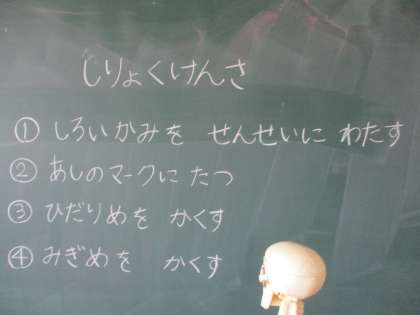 しりょくけんさ
① しろいかみを せんせいに わたす
② あしのマークに たつ
③ ひだりめを かくす
④ みぎめを かくす